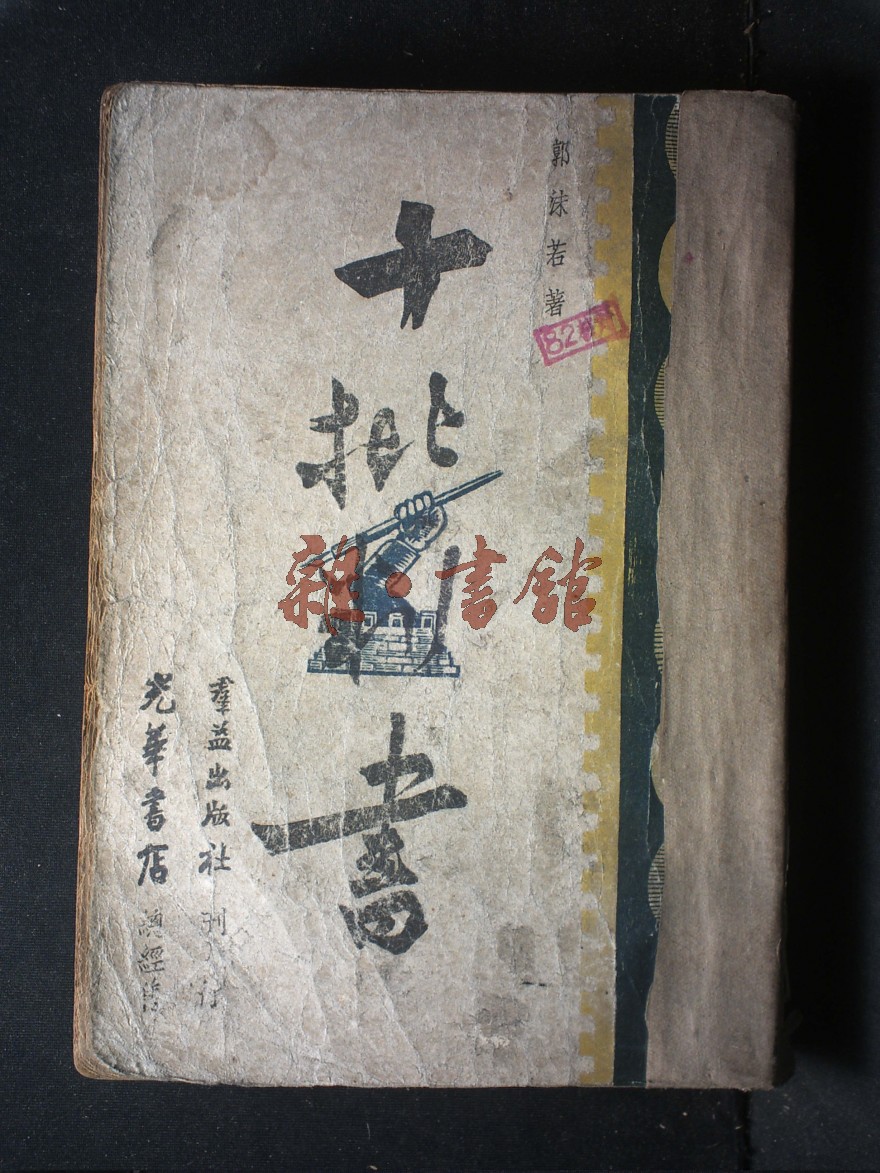 郭沫若著
十批判書
羣益出版社刊行
光華書店總經售
雜·書館
82